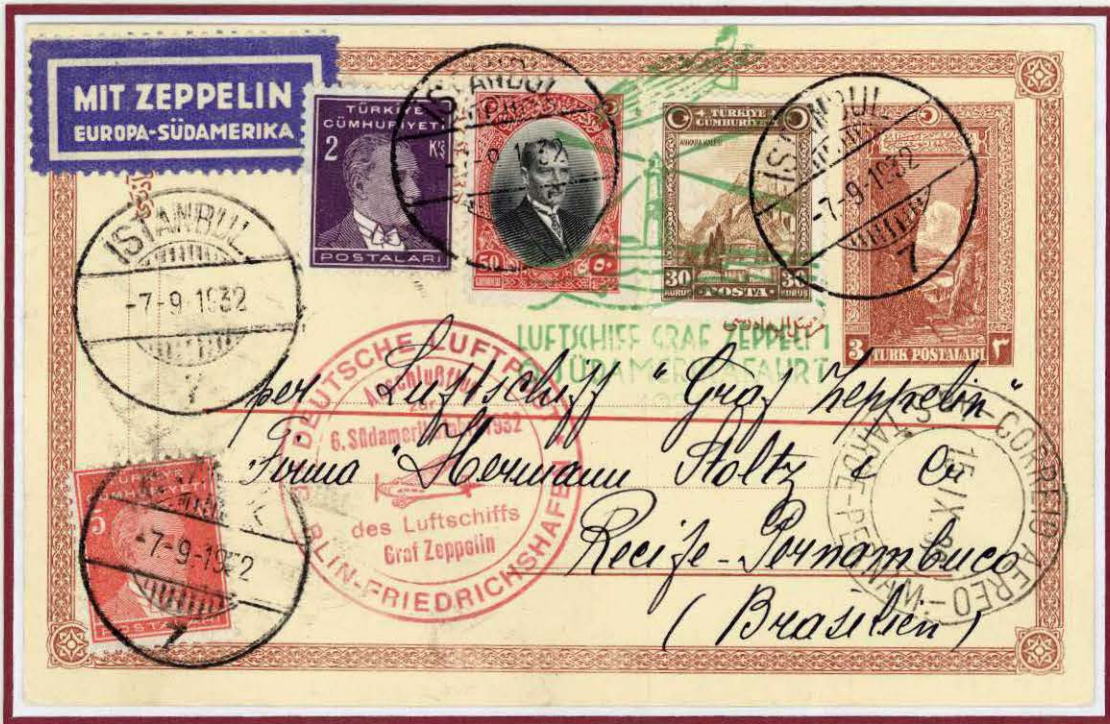 MIT ZEPPELIN
EUROPA-SÜDAMERIKA
TÜRKİYE
CÜMHURİYETİ
2 K'S
POSTALARI
ISTANBUL
-7-9-1932
50
TÜRKİYE
CÜMHURİYETİ
ANKARA KALESİ
30 30
KURUŞ POSTA KURUŞ
ISTANBUL
-7-9-1932
7
3 TÜRK POSTALARI ٣
ISTANBUL
-7-9-1932
7
LUFTSCHIFF GRAF ZEPPELIN
SÜDAMERIKAFAHRT
DEUTSCHE LUFTPOST
Anschlußflug
zur
6. Südamerikafahrt 1932
des Luftschiffs
Graf Zeppelin
BLIN-FRIEDRICHSHAFEN
per Luftschiff "Graf Zeppelin"
Firma Hermann Stoltz & Co
Recife-Pernambuco
(Brasilien)
CORREIO AEREO
15.IX.32
5
POSTALARI
-7-9-1932
7